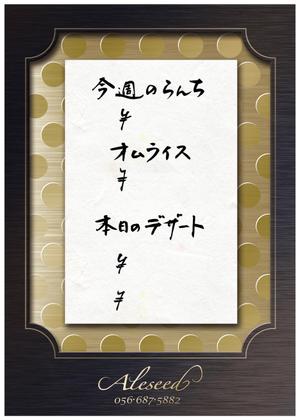 今週のらんち
¥
オムライス
¥
本日のデザート
¥
¥
Aleseed
056-687-5882